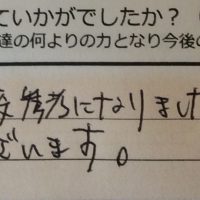 ていかがでしたか？（
達の何よりの力となり今後の
参考になりました
ざいます。